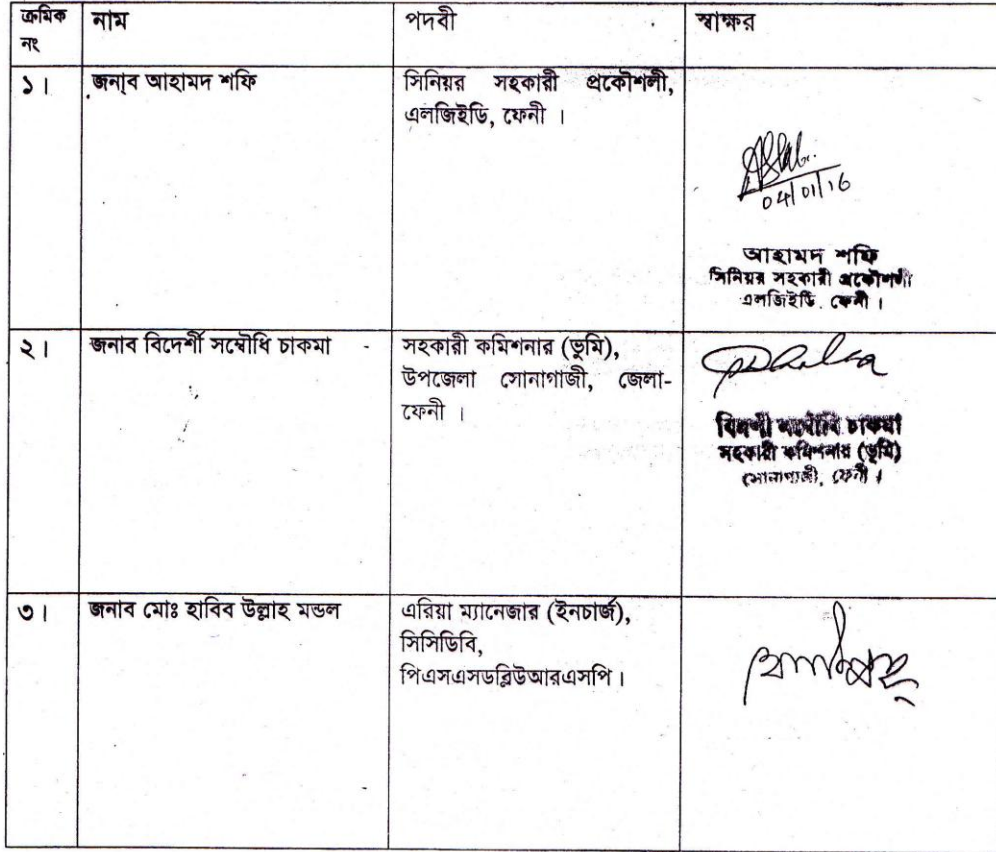 ক্রমিক নং নাম পদবী স্বাক্ষর
১। জনাব আহামদ শফি সিনিয়র সহকারী প্রকৌশলী,
এলজিইডি, ফেনী ।
04/01/16
আহামদ শফি
সিনিয়র সহকারী প্রকৌশলী
এলজিইডি. ফেনী ।
২। জনাব বিদর্শী সম্বৌধি চাকমা - সহকারী কমিশনার (ভুমি),
উপজেলা সোনাগাজী, জেলা-
ফেনী ।
বিদর্শী সম্বৌধি চাকমা
সহকারী কমিশনার (ভূমি)
সোনাগাজী, ফেনী ।
৩। জনাব মোঃ হাবিব উল্লাহ মন্ডল এরিয়া ম্যানেজার (ইনচার্জ),
সিসিডিবি,
পিএসএসডব্লিউআরএসপি।